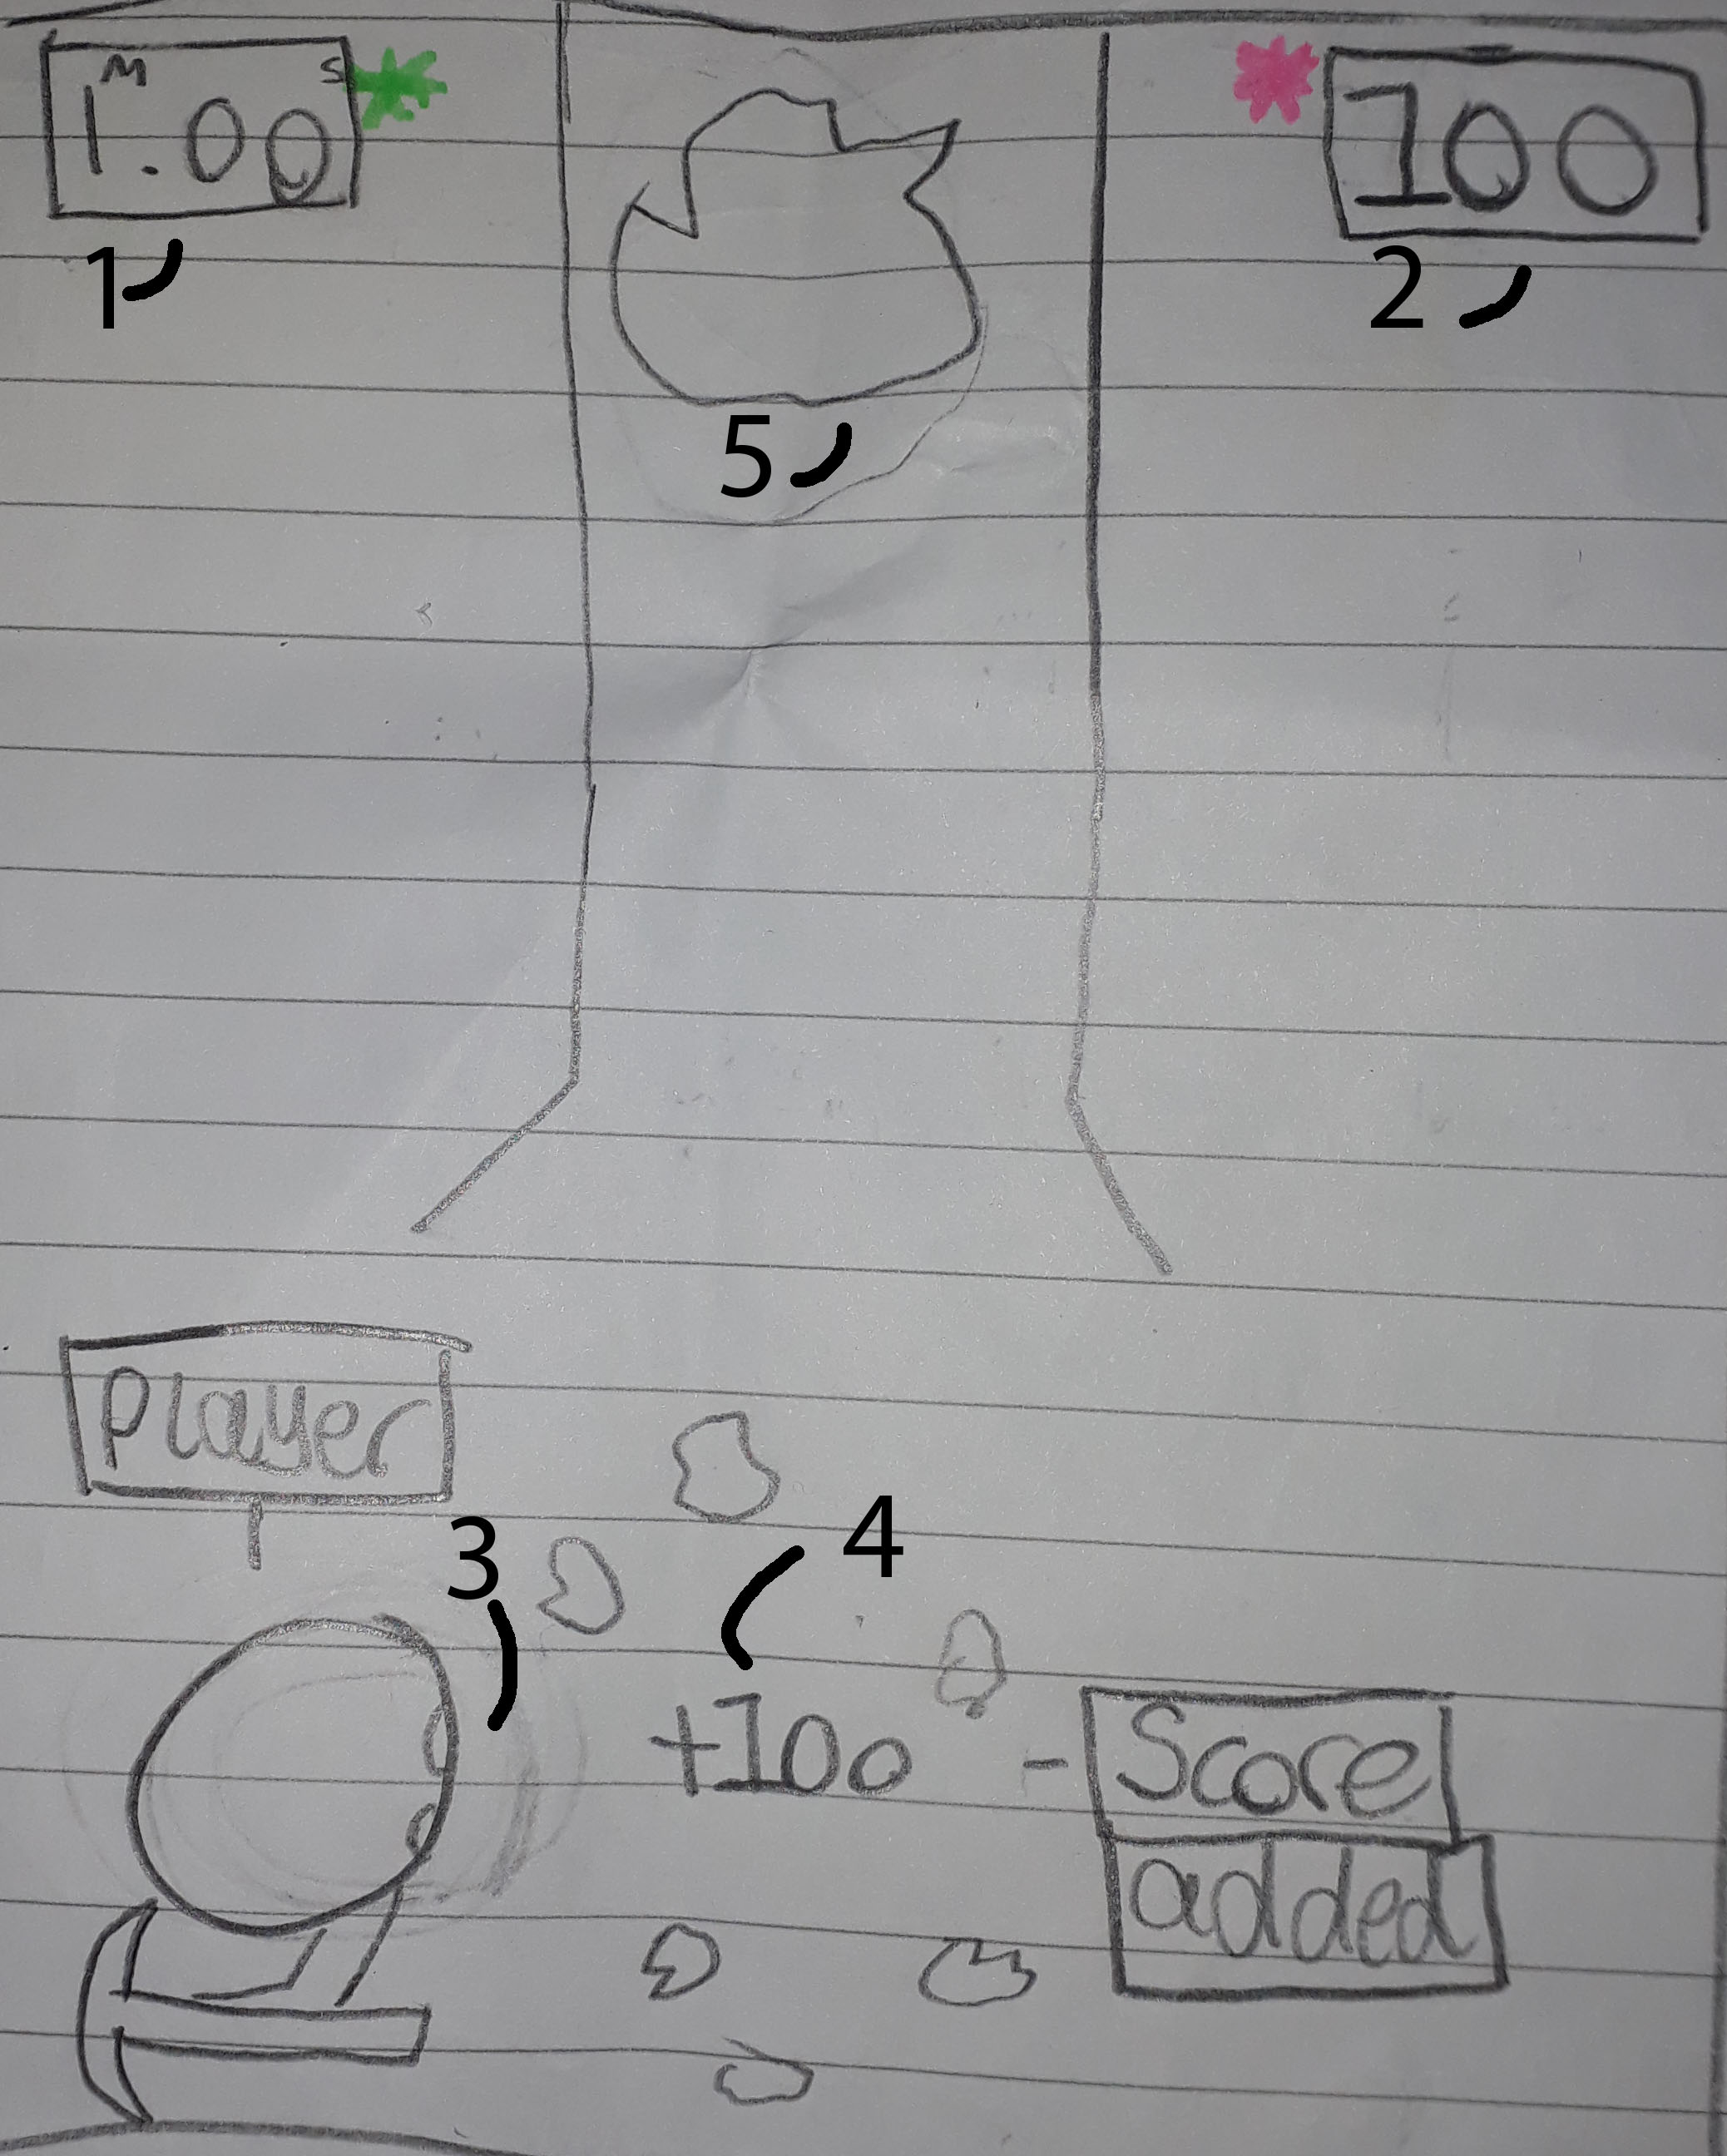 M S
1.00
100
1
2
5
Player
3
4
+100 - Score
added